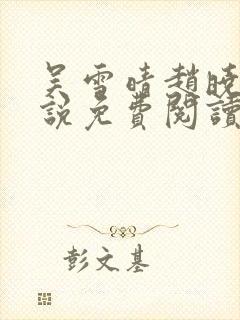 吴雪晴趙曉
說免費閱讀
彭文基